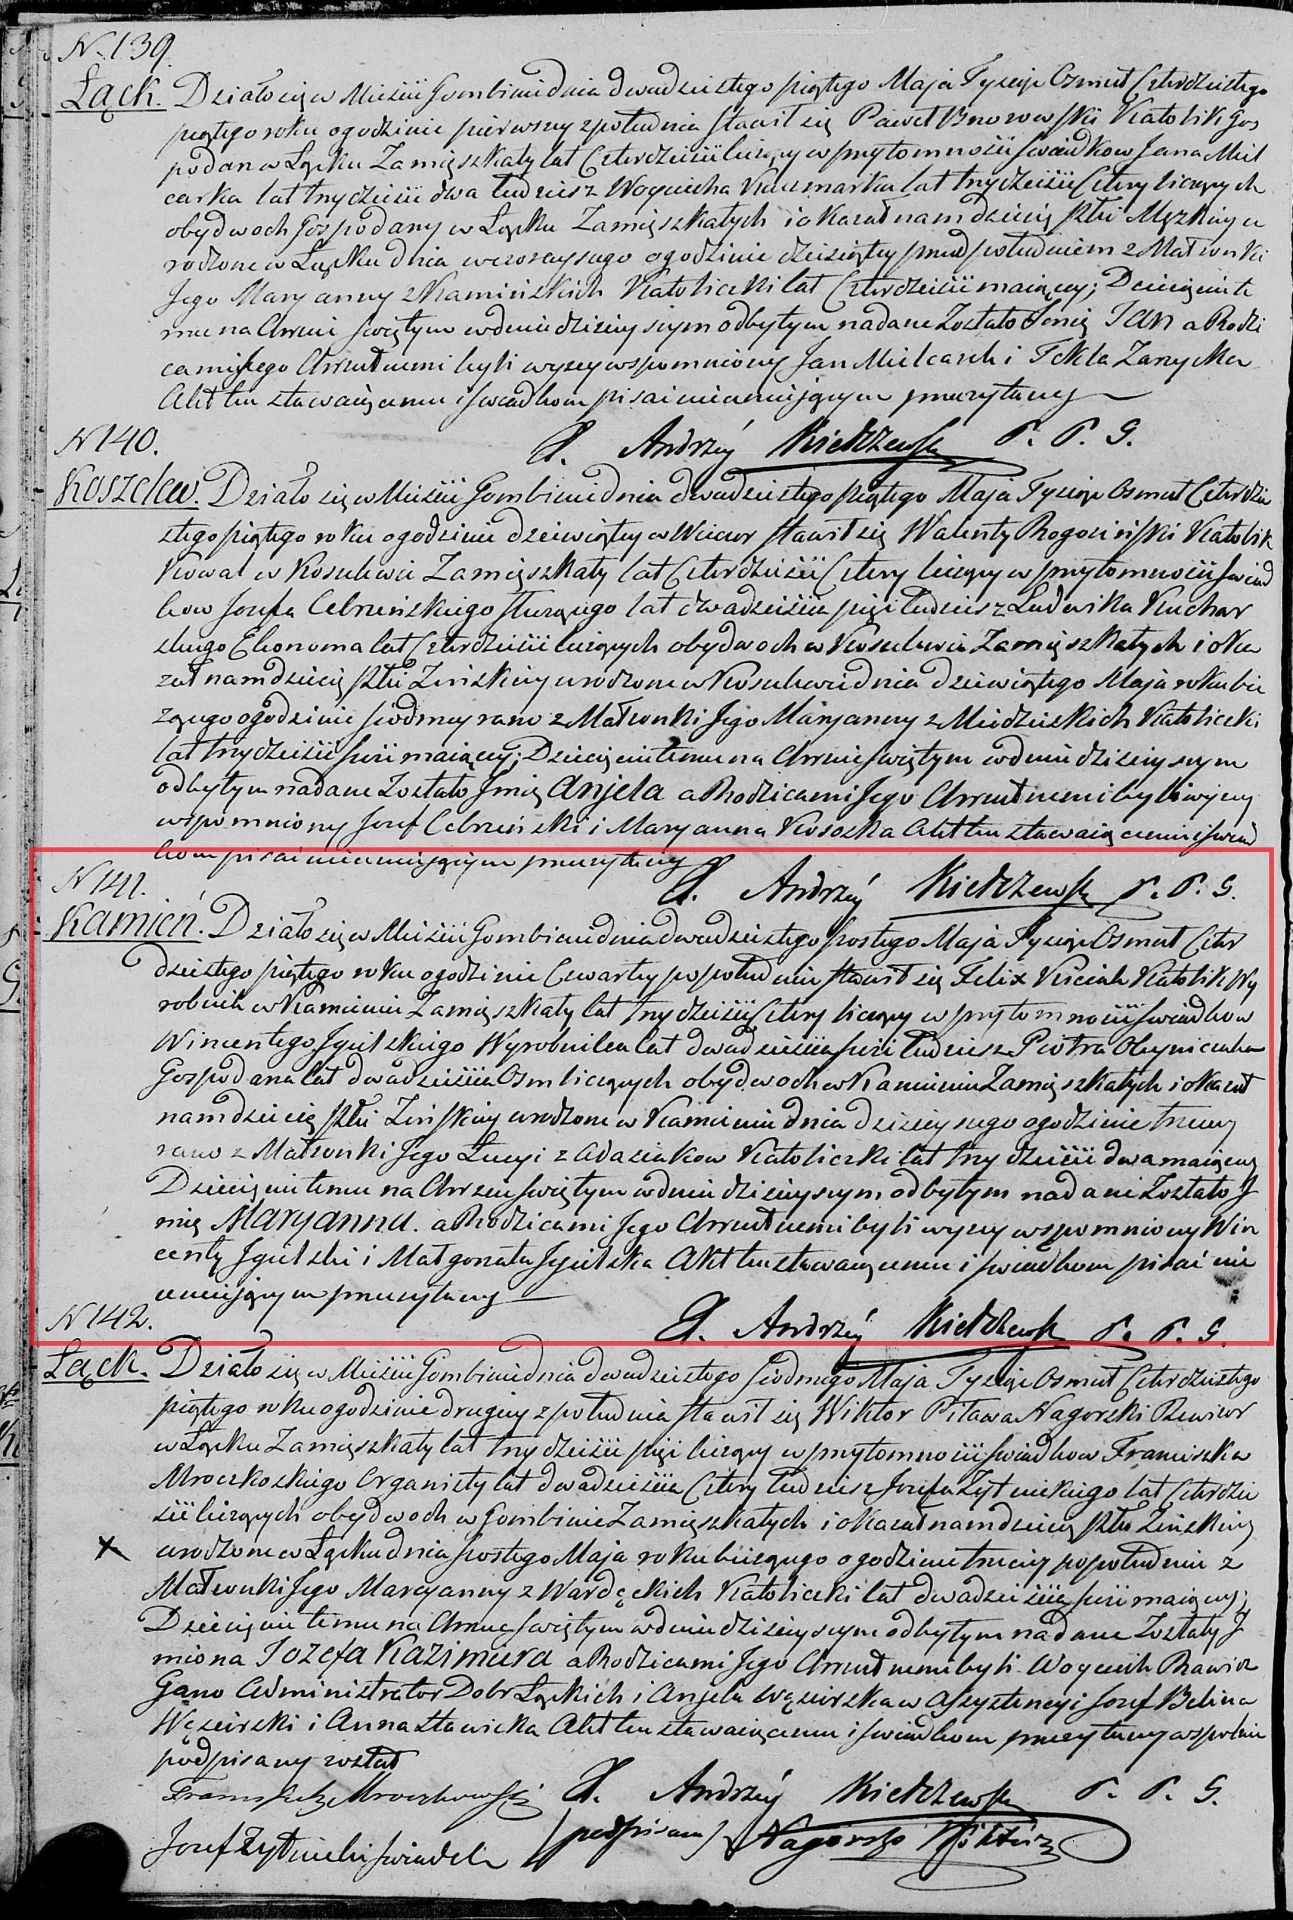 N. 139.
Łąck. Działo się w Mieście Gombinie dnia dwudziestego piątego Maja Tysiąc Osmset Czterdziestego
piątego roku o godzinie pierwszy z południa stawił się Paweł Katolik Gos
podarz w Łącku Zamięszkały lat Czterdzieści liczący w przytomności świadkow Jana Miel
carka lat trzydzieści dwa tudziesz Woyciecha Kaczmarka lat trzydzieści Cztery liczących
obydwoch Gospodarzy w Łącku Zamięszkałych i okazał nam dziecię Płci Męzkiey u
rodzone w Łącku dnia wczorayszego o godzinie dziesiątey przed południem z Małżonki
Jego Maryanny z Kamińskich Katoliczki lat Czterdzieści maiącey; Dziecięciu te
mu na Chrzcie świętym w dniu dzisieyszym odbytym nadane Zostało Imię JAN a Rodzi
camiJego Chrzestnemi byli wyzey wspomniony Jan Mielcarek i Tekla Zarycka
Akt ten stawaiącemu i świadkom pisać nieumiejącym przeczytany
X. Andrzéy Kiełczewski P. P. G.
N 140.
Koszelew. Działo się w Mieście Gombinie dnia dwudziestego piątego Maja Tysiąc Osmset Czterdzie
stego piątego roku o godzinie dziewiątey w Wieczor stawił się Walenty Rogosiński Katolik
Kowal w Koszelewie Zamięszkały lat Czterdzieści Cztery liczący w przytomności świad
kow Jozefa Cebrzeńskiego służącego lat dwadzieścia pięć tudziesz Ludwika Kuchar
skiego Ekonoma lat Czterdzieści liczących obydwoch w Koszelewie Zamięszkałych i oka
zał nam dziecię płci Zeńskiey urodzone w Koszelewie dnia dziewiątego Maja roku bie
zącego o godzinie siodmey rano z Małżonki Jego Maryanny z Miedzeskich Katoliczki
lat trzydzieści sześć maiącey; Dziecięciu temu na Chrzcie świętym w dniu dzisieyszym
odbytym nadane Zostało Imię Anjela a Rodzicami Jego Chrzestnemi byli wyzey
wspomniony Jozef Cebrzeński i Maryanna Kososka Akt ten stawaiącemu i świad
kom pisać nieumiejącym przeczytany
X. Andrzéy Kiełczewski P. P. G.
N 141.
Kamień. Działo się w Mieście Gombinie dnia dwudziestego szostego Maja Tysiąc Osmset Czter
dziestego piątego roku o godzinie Czwartey po południu stawił się Felix Kściuk Katolik Wy
robnik w Kamieniu Zamięszkały lat trzydzieści Cztery liczący w przytomności świadkow
Wincentego Jgielskiego Wyrobnika lat dwadzieścia sześć tudziesz Piotra Oleyniczaka
Gospodarza lat dwadzieścia Osm liczących obydwoch w Kamieniu Zamięszkałych i okazał
nam dziecię płci Zeńskiey urodzone w Kamieniu dnia dzisieyszego o godzinie trzeciey
rano z Małzonki Jego Łucyi z Adaziakow Katoliczki lat trzydzieści dwa maiącey
Dziecięciu temu na Chrzcie świętym w dniu dzisieyszym odbytym nadane Zostało J
mię Maryanna. a Rodzicami Jego Chrzestnemi byli wyzey wspomniony Win
centy Jgielski i Małgorzata Jgielska Akt ten stawaiącemu i świadkom pisać nie
umiejącym przeczytany
X. Andrzéy Kiełczewski P. P. G.
N 142.
Łąck. Działo się w Mieście Gombinie dnia dwudziestego siodmego Maja Tysiąc Osmset Czterdziestego
piątego roku o godzinie drugiey z południa stawił się Wiktor Pilawa Nagorski Rewizor
w Łącku Zamięszkały lat trzydzieści pięć liczący w przytomności świadkow Franciszka
Mroczkoskiego Organisty lat dwadzieścia Cztery tudziesz Jozefa Zytnickiego lat Czterdzie
ści liczących obydwoch w Gombinie Zamięszkałych i okazał nam dziecię płci Zeńskiey
urodzone w Łącku dnia szostego Maja roku bieżącego o godzinie trzeciey po południu z
Małzonki Jego Maryanny z Wardęckich Katoliczki lat dwadzieścia sześć maiącey;
Dziecięciu temu na Chrzcie świętym w dniu dzisieyszym odbytym nadane Zostały J
miona Jozefa Kazimiera a Rodzicami Jego Chrzestnemi byli Woyciech Rawicz
Administrator Dobr Łąckich i Anjela Węzierska w Assystencyi Jozef Belina
Węzierski i Anna Stawicka Akt ten stawaiącemu i świadkom przeczytany wspolnie
podpisany został
Franciszek Mroczkowski X. Andrzéy Kiełczewski P. P. G.
Jozef Zytnicki świadek (podpisano) Nagórski Wiktor